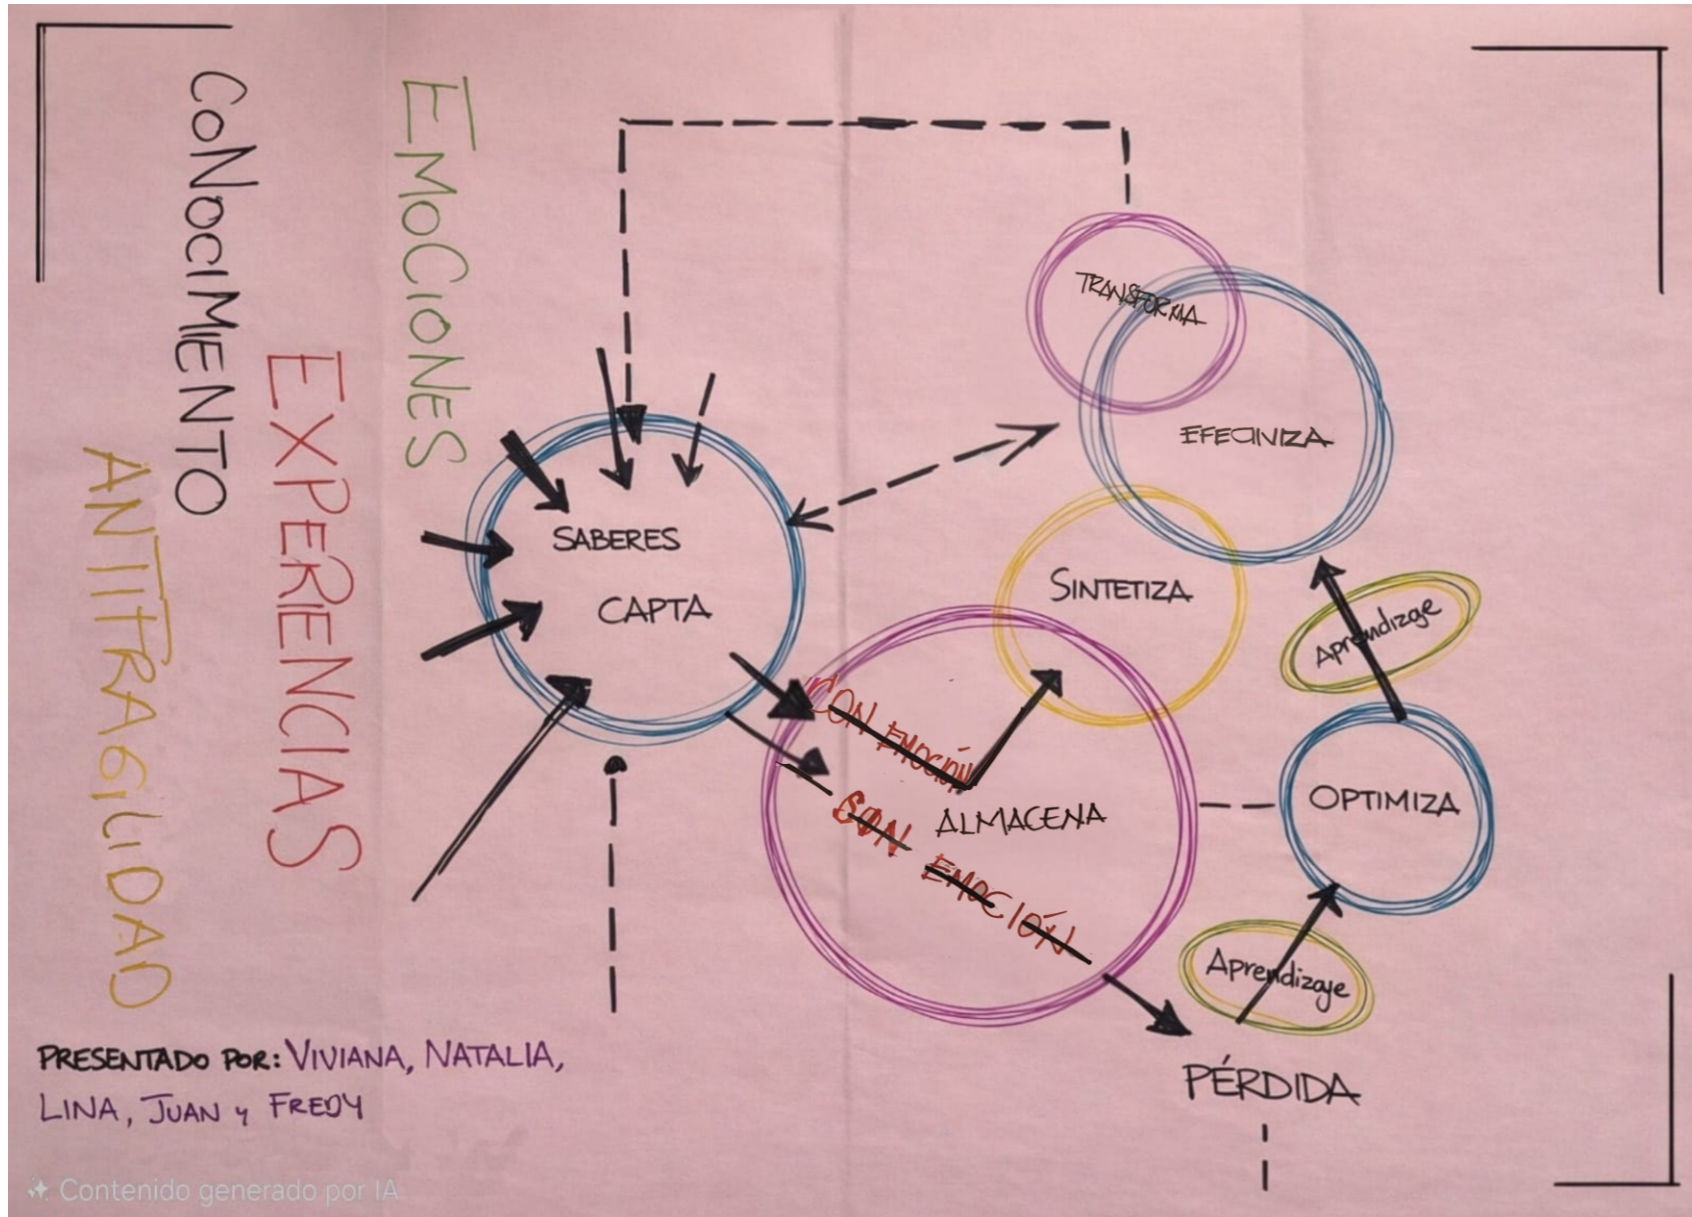 CONOCIMIENTO
EMOCIONES
EXPERIENCIAS
ANTIFRAGILIDAD
TRANSFORMA
EFECTIVIZA
SABERES
CAPTA
SINTETIZA
Aprendizaje
CON EMOCIÓN
ALMACENA
OPTIMIZA
SON EMOCIÓN
Aprendizaje
PÉRDIDA
PRESENTADO POR: VIVIANA, NATALIA,
LINA, JUAN y FREDY
Contenido generado por IA